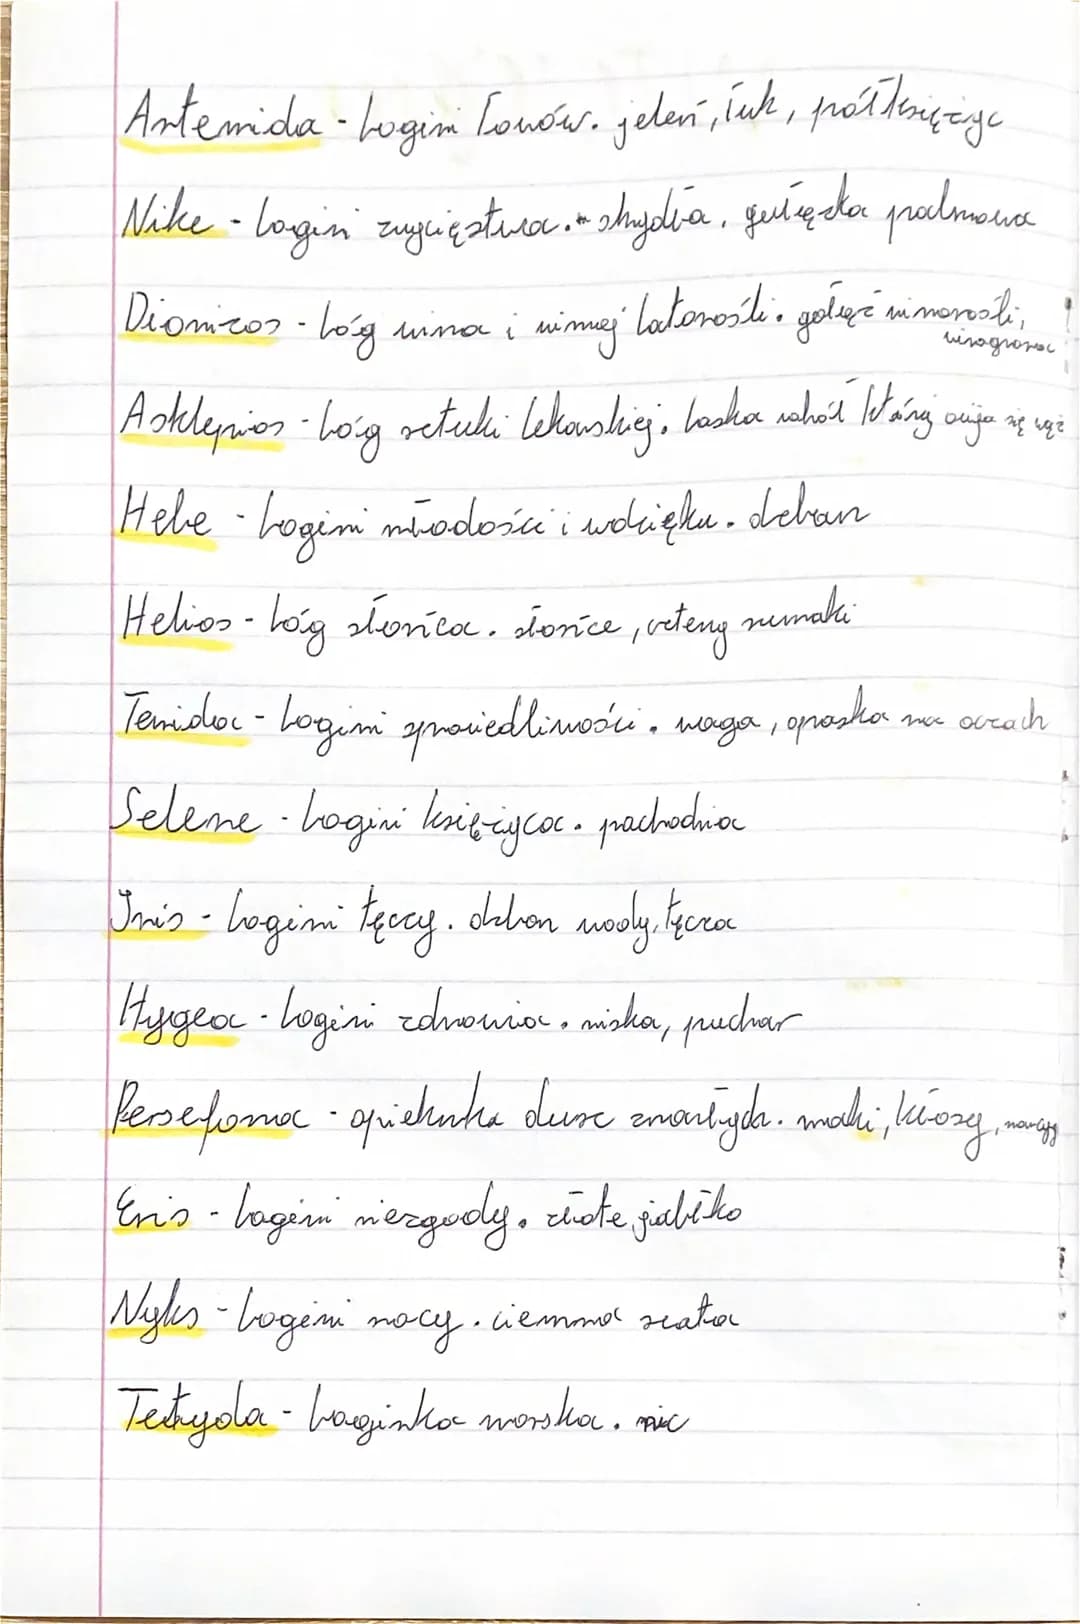 Artemida - bogini łowów. jeleń, łuk, półksiężyc
Nike - bogini zwycięstwa. skrzydła, gałązka palmowa
Dionizos - bóg wina i winnej latorośli. gałąź winorośli,
winogrona
Asklepios - bóg sztuki lekarskiej. laska wokół której owija się wąż
Hebe - bogini młodości i wdzięku. dzban
Helios - bóg słońca. słońce, cztery rumaki
Temida - bogini sprawiedliwości. waga, opaska na oczach
Selene - bogini księżyca. pochodnia
Iris - bogini tęczy. dzban wody, tęcza
Hygea - bogini zdrowia. miska, puchar
Persefona - opiekunka dusz zmarłych. maki, kłosy, narcyzy
Eris - bogini niezgody. złote jabłko
Nyks - bogini nocy. ciemna szata
Tetyda - boginka morska. nic